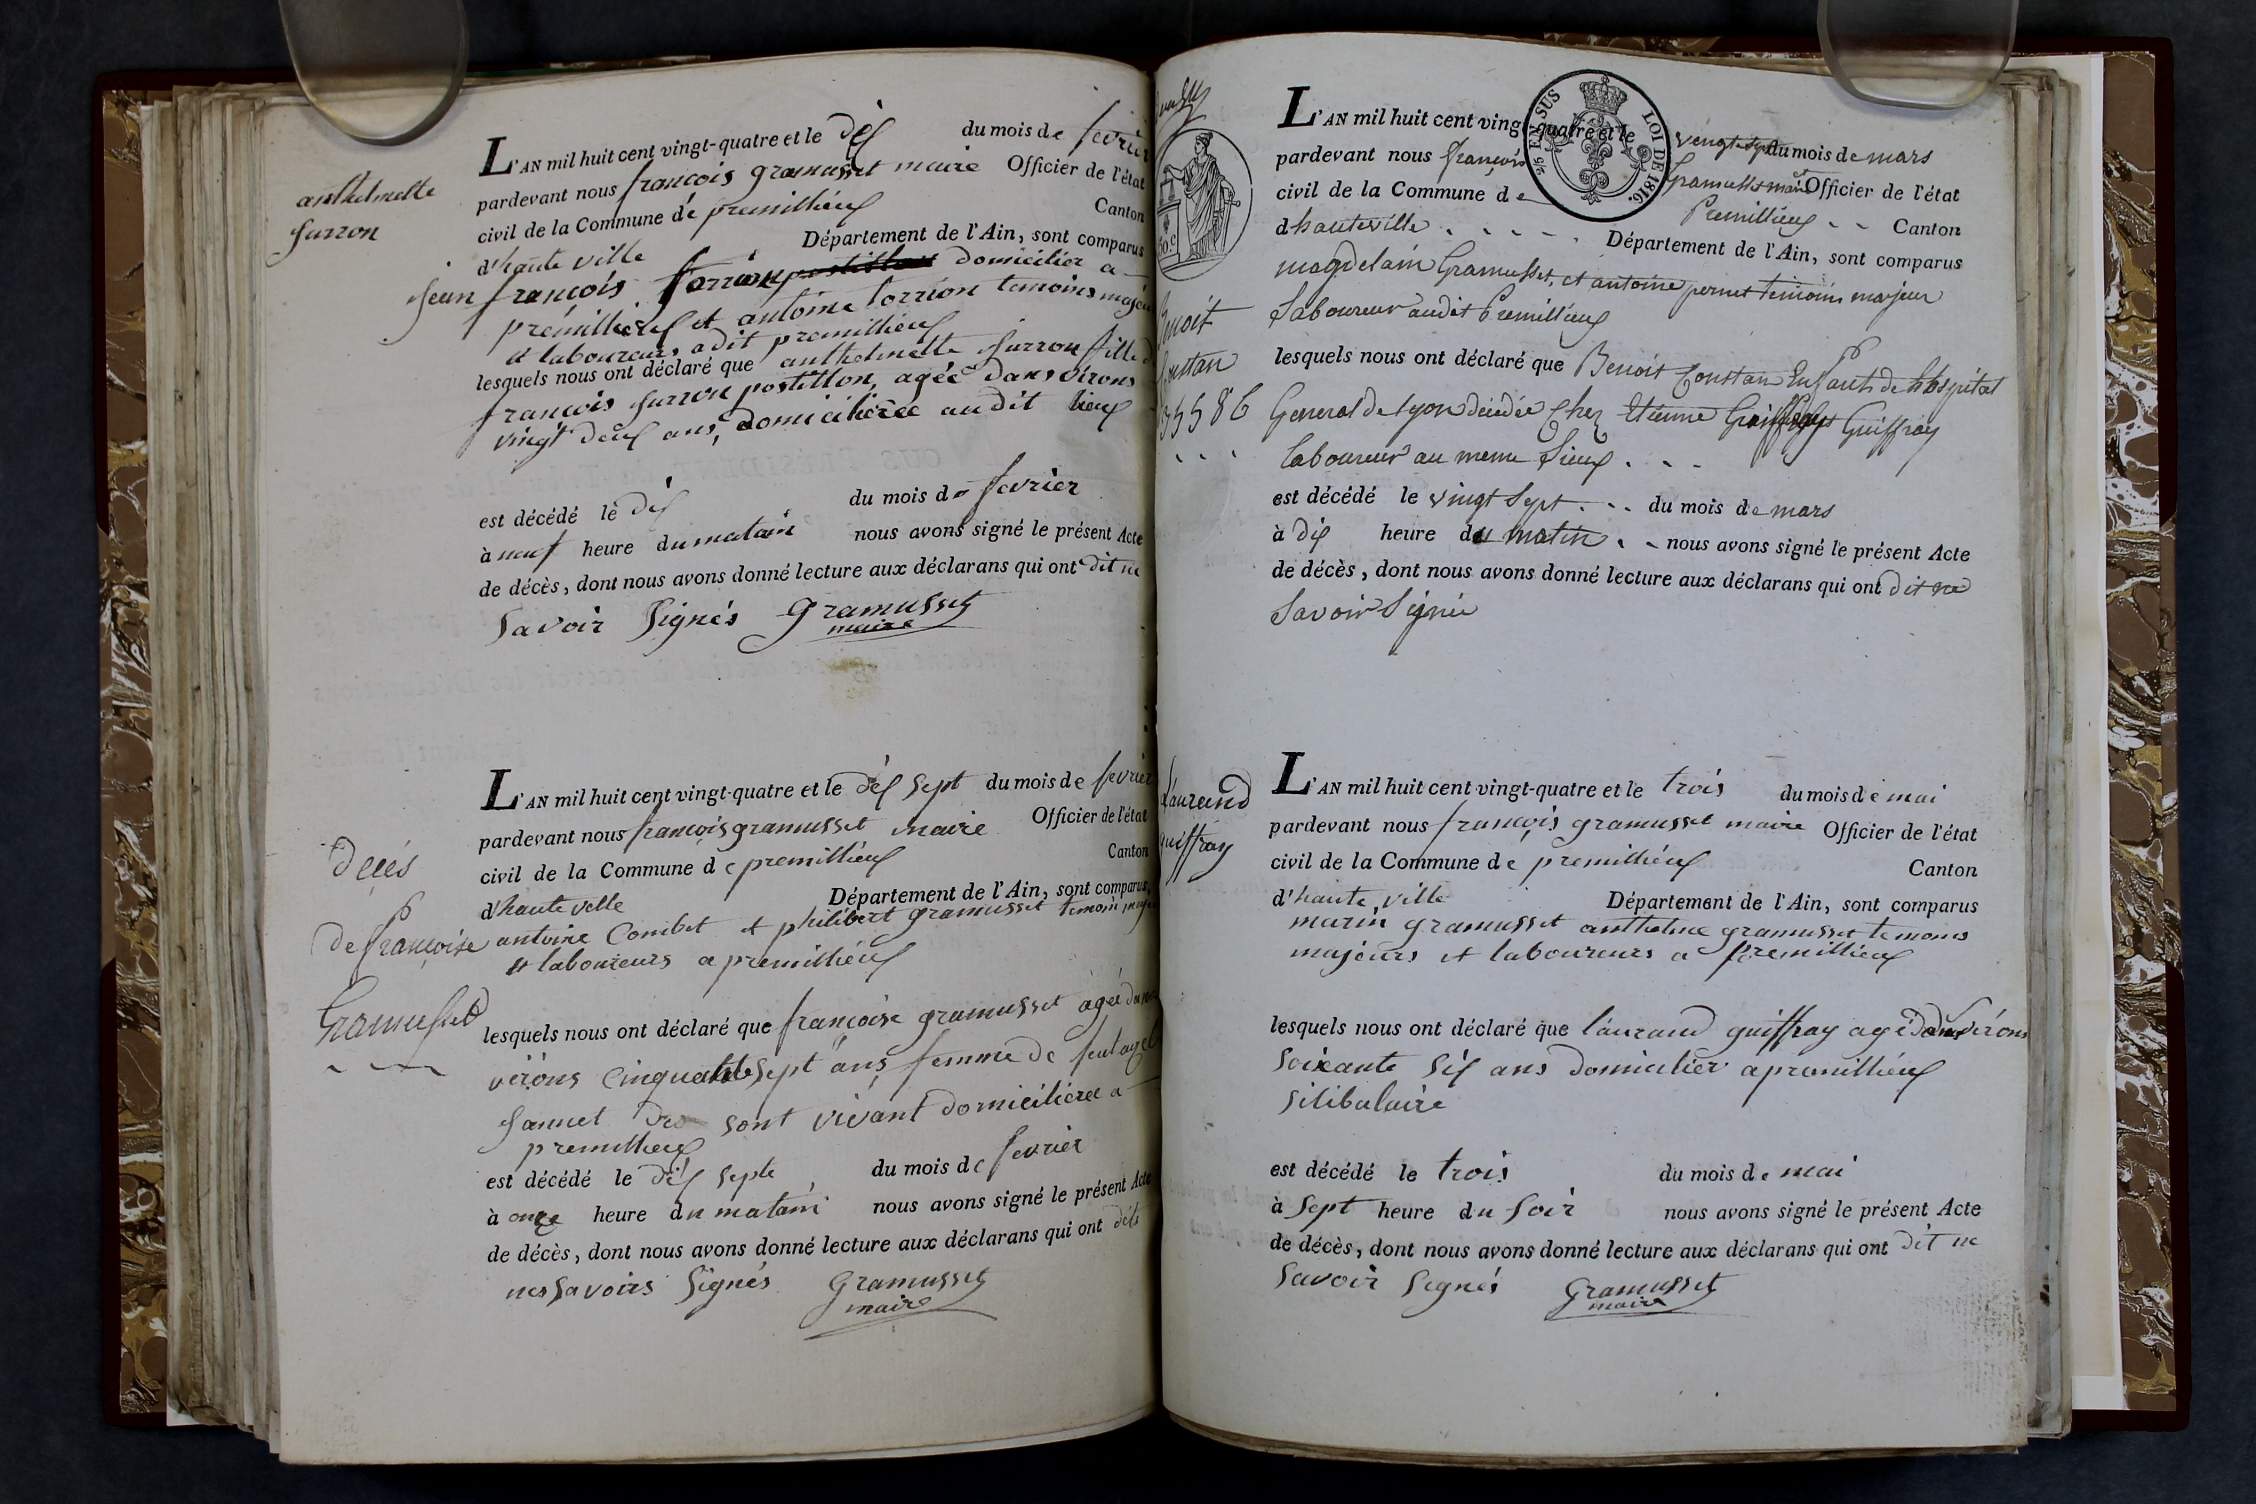 anthelmette
surron
L'AN mil huit cent vingt-quatre et le dix du mois de fevrier
pardevant nous françois gramusset maire Officier de l'état
civil de la Commune de premillieux Canton
d'haute ville Département de l'Ain, sont comparus
jean françois sorrion domicilier a
premillieux et antoine lorrion temoins majeu
et laboureurs adit premillieux
lesquels nous ont déclaré que anthelmette surron fille d
françois surron postillon, agée danvirons
vingt deux ans, domicilierée audit lieux
est décédé le dix du mois de fevrier
à neuf heure du matain nous avons signé le présent Acte
de décès, dont nous avons donné lecture aux déclarans qui ont dit ne
savoir signés gramusset
maire
L'AN mil huit cent vingt-quatre et le dix sept du mois de fevrier
pardevant nous françois gramusset maire Officier de l'état
civil de la Commune de premillieux Canton
d'haute ville Département de l'Ain, sont comparus,
décés
de françoise
Gramusset
antoine Combet et philibert gramusset temoin maje
et laboureurs a premillieux
lesquels nous ont déclaré que françoise gramusset agée dan
virons cinquante sept ans femme de
sont vivant domicilierée a
premillieux
est décédé le dix septe du mois de fevrier
à onze heure du matain nous avons signé le présent Acte
de décès, dont nous avons donné lecture aux déclarans qui ont dits
nes savoirs signés gramusset
maire
L'AN mil huit cent vingt-quatre et le vengt sept du mois de mars
pardevant nous françois Gramusset maire Officier de l'état
civil de la Commune de Premillieux Canton
d hauteville Département de l'Ain, sont comparus
2/5 EN SUS LOI DE 1816.
magdelain Gramusset, et antoine pernet temoins majeur
Laboureur audit Premillieux
Benoit
Constan
35586
lesquels nous ont déclaré que Benoit Constan Enfant de lhospital
General de lyon décédée Chez Etienne Guiffray
laboureur au meme Lieux
est décédé le vingt Sept du mois de mars
à dix heure du matin nous avons signé le présent Acte
de décès, dont nous avons donné lecture aux déclarans qui ont dit ne
Savoir Signée
Laurand
guiffray
L'AN mil huit cent vingt-quatre et le trois du mois de mai
pardevant nous françois gramusset maire Officier de l'état
civil de la Commune de premillieux Canton
d'haute ville Département de l'Ain, sont comparus
marin gramusset anthelme gramusset temoins
majeurs et laboureurs a premillieux
lesquels nous ont déclaré que laurand guiffray agé danvirons
soixante six ans domicilier a premillieux
silibalaire
est décédé le trois du mois de mai
à sept heure du soir nous avons signé le présent Acte
de décès, dont nous avons donné lecture aux déclarans qui ont dit ne
savoir signés gramusset
maire